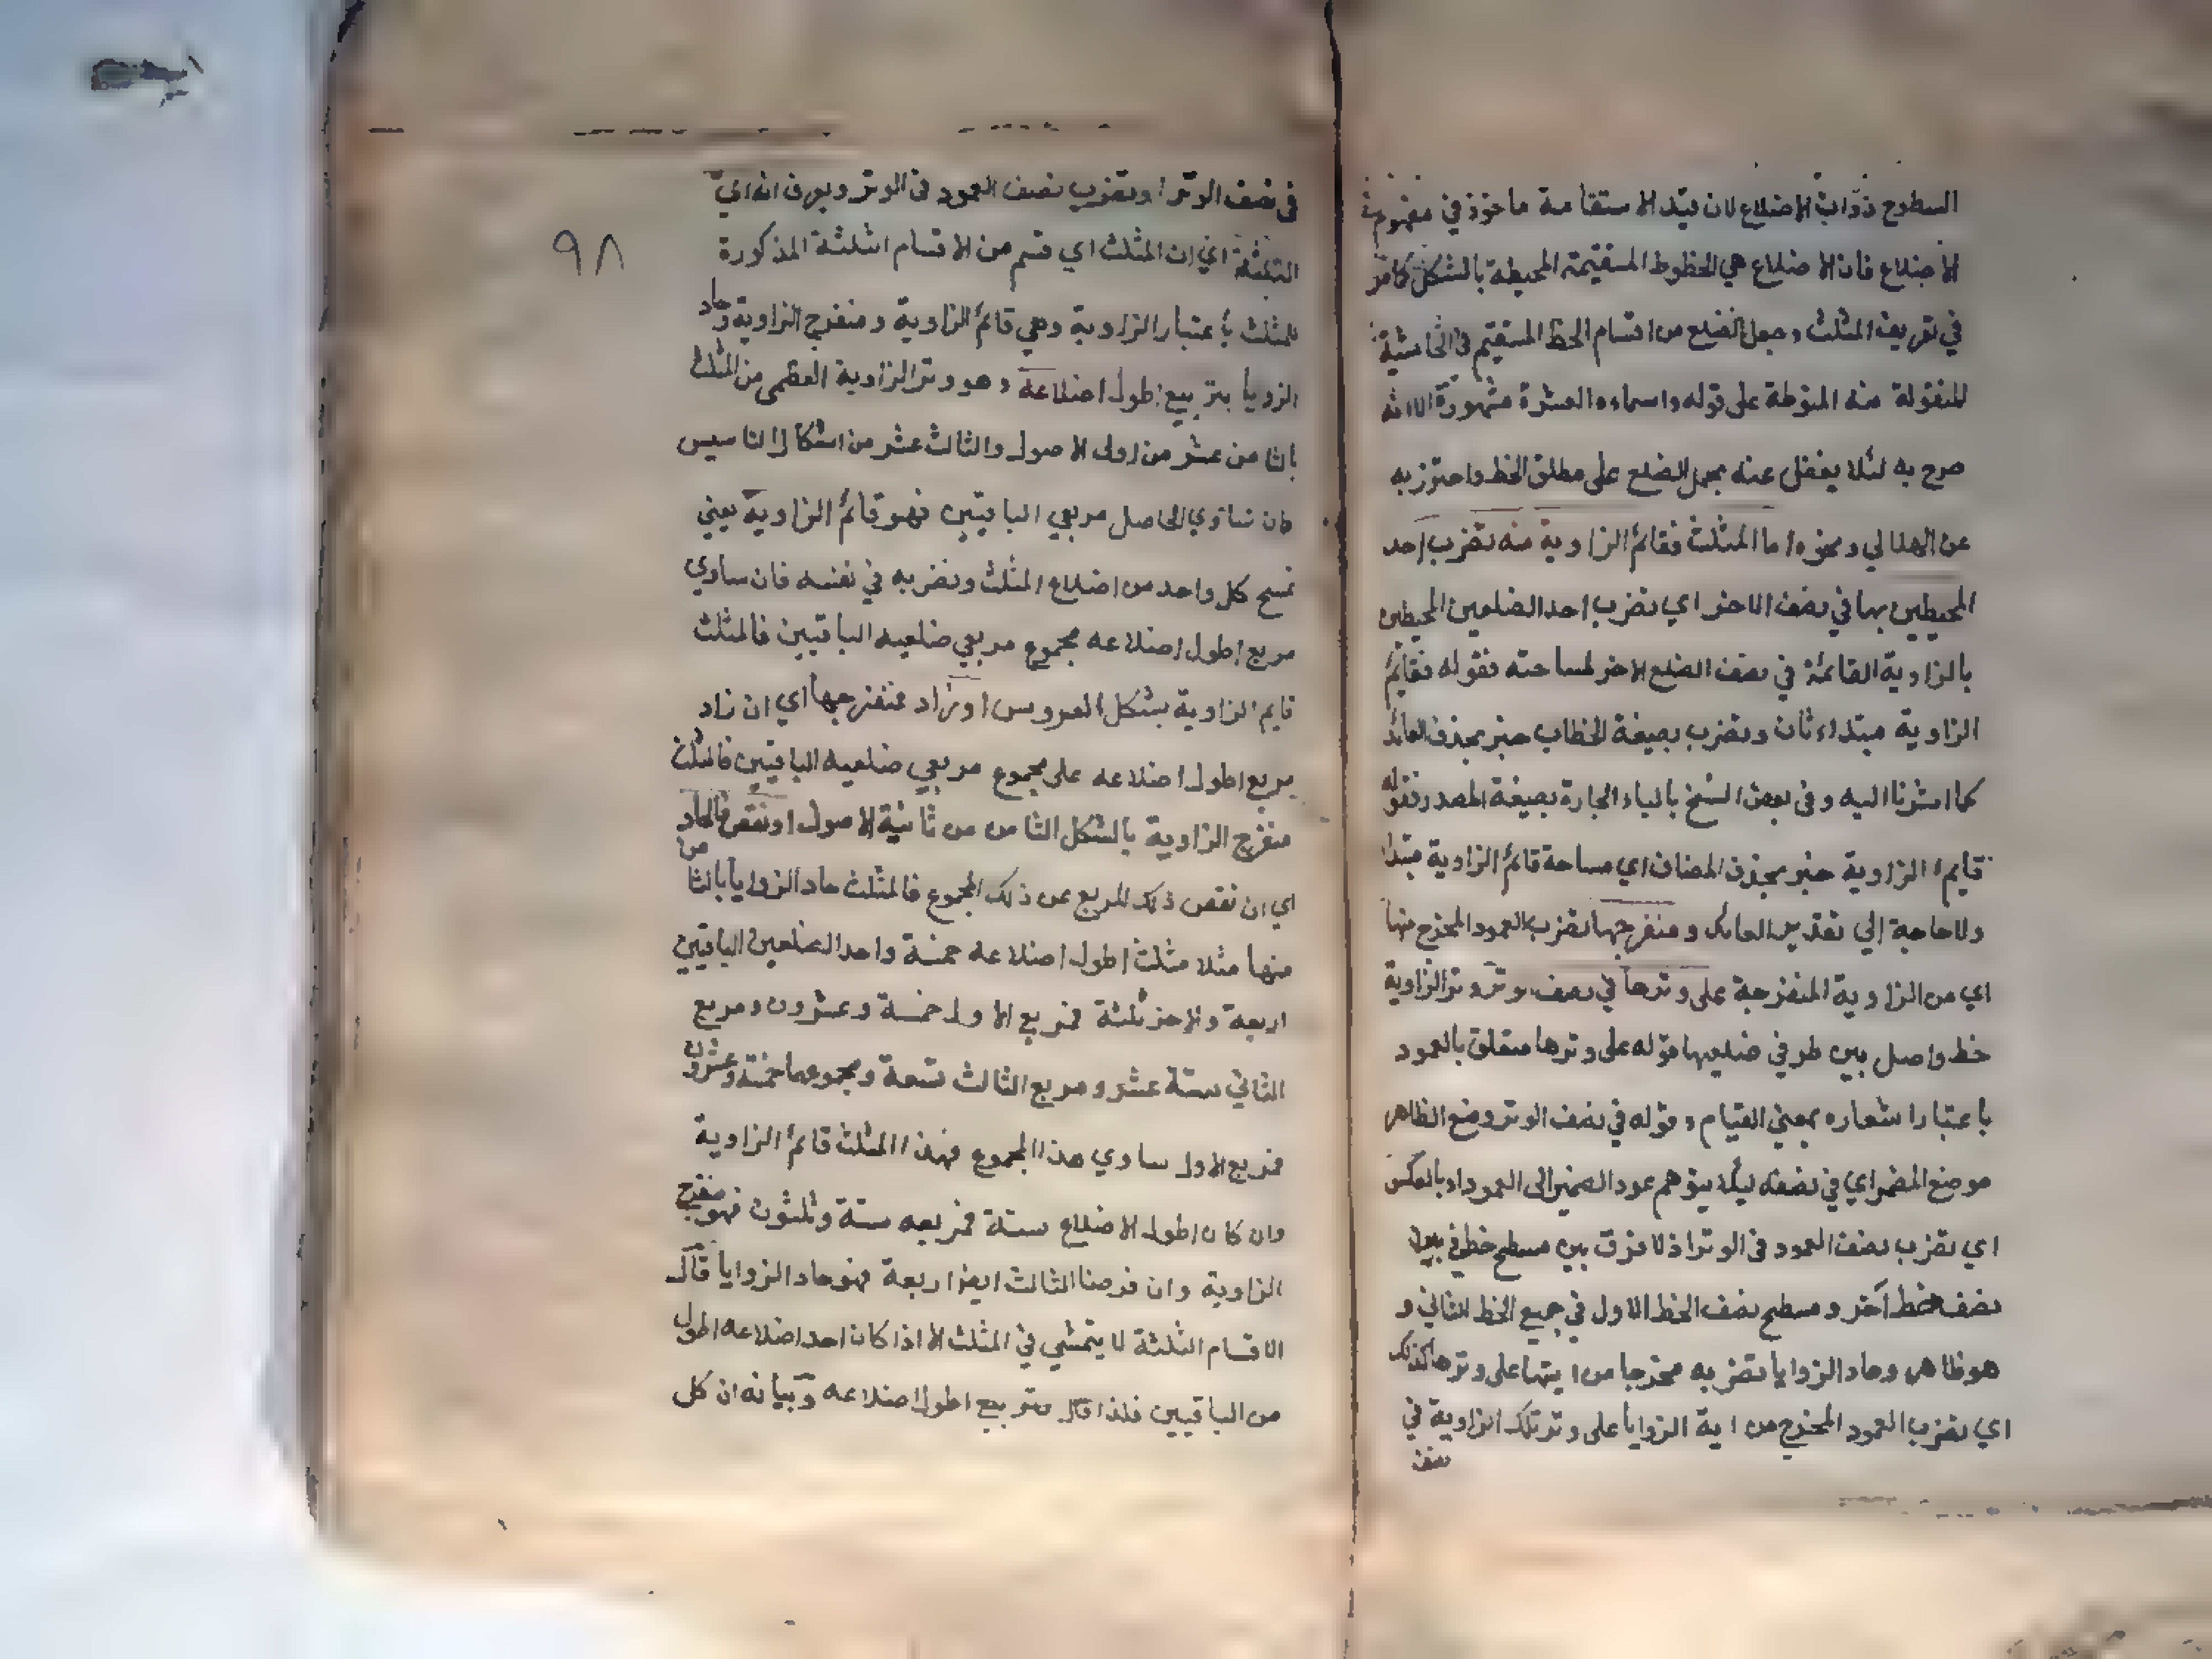 السطوح ذوات الاضلاع لان قيد الاستقامة ماخوذ في مفهوم
الاضلاع فان الاضلاع هي الخطوط المستقيمة المحيطة بالشكل كما مر
في تعريف المثلث وجعل الضلع من اقسام الخط المستقيم في الحاشية
المنقولة منه المنوطة على قوله واسماءه العشرة مشهورة الا انه
صرح به لئلا يغفل عنه بحمل الضلع على مطلق الخط واحترز به
عن الهلالي ونحوه اما المثلث فقائم الزاوية منه تضرب احد
المحيطين بها في نصف الاخر اي تضرب احد الضلعين المحيطين
بالزاوية القائمة في نصف الضلع الاخر لمساحته فقوله فقائم
الزاوية مبتداء ثان وتضرب بصيغة الخطاب خبر بحذف العائد
كما اشرنا اليه وفي بعض النسخ بالباء الجارة بصيغة المصدر فقوله
قايم الزاوية خبر بحذف المضاف اي مساحة قائم الزاوية مبتدا
ولا حاجة الي تقدير العائد ومنفرجها تضرب العمود المخرج منها
اي من الزاوية المنفرجة على وترها في نصف الوتر وتر الزاوية
خط واصل بين طرفي ضلعيها قوله على وترها متعلق بالعمود
باعتبار اشعاره بمعني القيام وقوله في نصف الوتر وضع الظاهر
موضع المضمر اي في نصفه ليلا يتوهم عود الضمير الى العمود او بالعكس
اي تضرب نصف العمود في الوتر اذ لا فرق بين مسطح خط في
نصف خط آخر ومسطح نصف الخط الاول في جميع الخط الثاني و
هو ظاهر وحاد الزوايا تضربه مخرجا من ايتها على وترها كذلك
اي تضرب العمود المخرج من اية الزوايا على وتر تلك الزاوية في
نصف
٩٨
في نصف الوتر او تضرب نصف العمود في الوتر ويعرف انه اي
الثلثة اي ان المثلث اي قسم من الاقسام الثلثة المذكورة
للمثلث باعتبار الزاوية وهي قائم الزاوية ومنفرج الزاوية وحاد
الزوايا بتربيع اطول اضلاعه وهو وتر الزاوية العظمى من المثلث
بالثامن عشر من اولى الاصول والثالث عشر من اشكال التاسيس
فان ساوي الحاصل مربعي الباقيين فهو قائم الزاوية يعني
تمسح كل واحد من اضلاع المثلث وتضربه في نفسه فان ساوي
مربع اطول اضلاعه مجموع مربعي ضلعيه الباقيين فالمثلث
قايم الزاوية بشكل العروس او زاد فمنفرجها اي ان زاد
مربع اطول اضلاعه على مجموع مربعي ضلعيه الباقيين فالمثلث
منفرج الزاوية بالشكل الثامن من ثانية الاصول او نقص فالحاد
اي ان نقص ذلك المربع عن ذلك المجموع فالمثلث حاد الزوايا بالثامن
منها مثلا مثلث اطول اضلاعه خمسة واحد الضلعين الباقيين
اربعة والاخر ثلثة فمربع الاول خمسة وعشرون ومربع
الثاني ستة عشر ومربع الثالث تسعة ومجموعهما خمسة وعشرون
فمربع الاول ساوي هذا المجموع فهذا المثلث قائم الزاوية
وان كان اطول الاضلاع ستة فمربعه ستة وثلثون فهو منفرج
الزاوية وان فرضنا الثالث ايضا اربعة فهو حاد الزوايا قال
الاقسام الثلثة لا يتمشي في المثلث الا اذا كان احد اضلاعه اطول
من الباقيين فلذا قال بتربيع اطول اضلاعه وبيانه ان كل